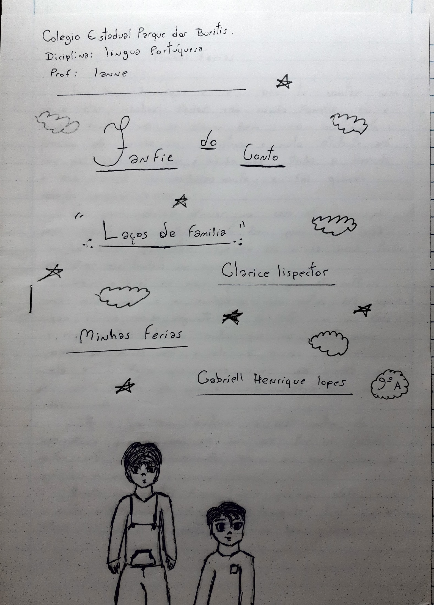 Colegio Estadual Parque dos Buritis.
Diciplina: língua Portuguesa
Prof: Ianne
Fanfic do Conto
"Laços de familia"
Clarice lispector
Minhas Ferias
Gabriell Henrique lopes
9º A